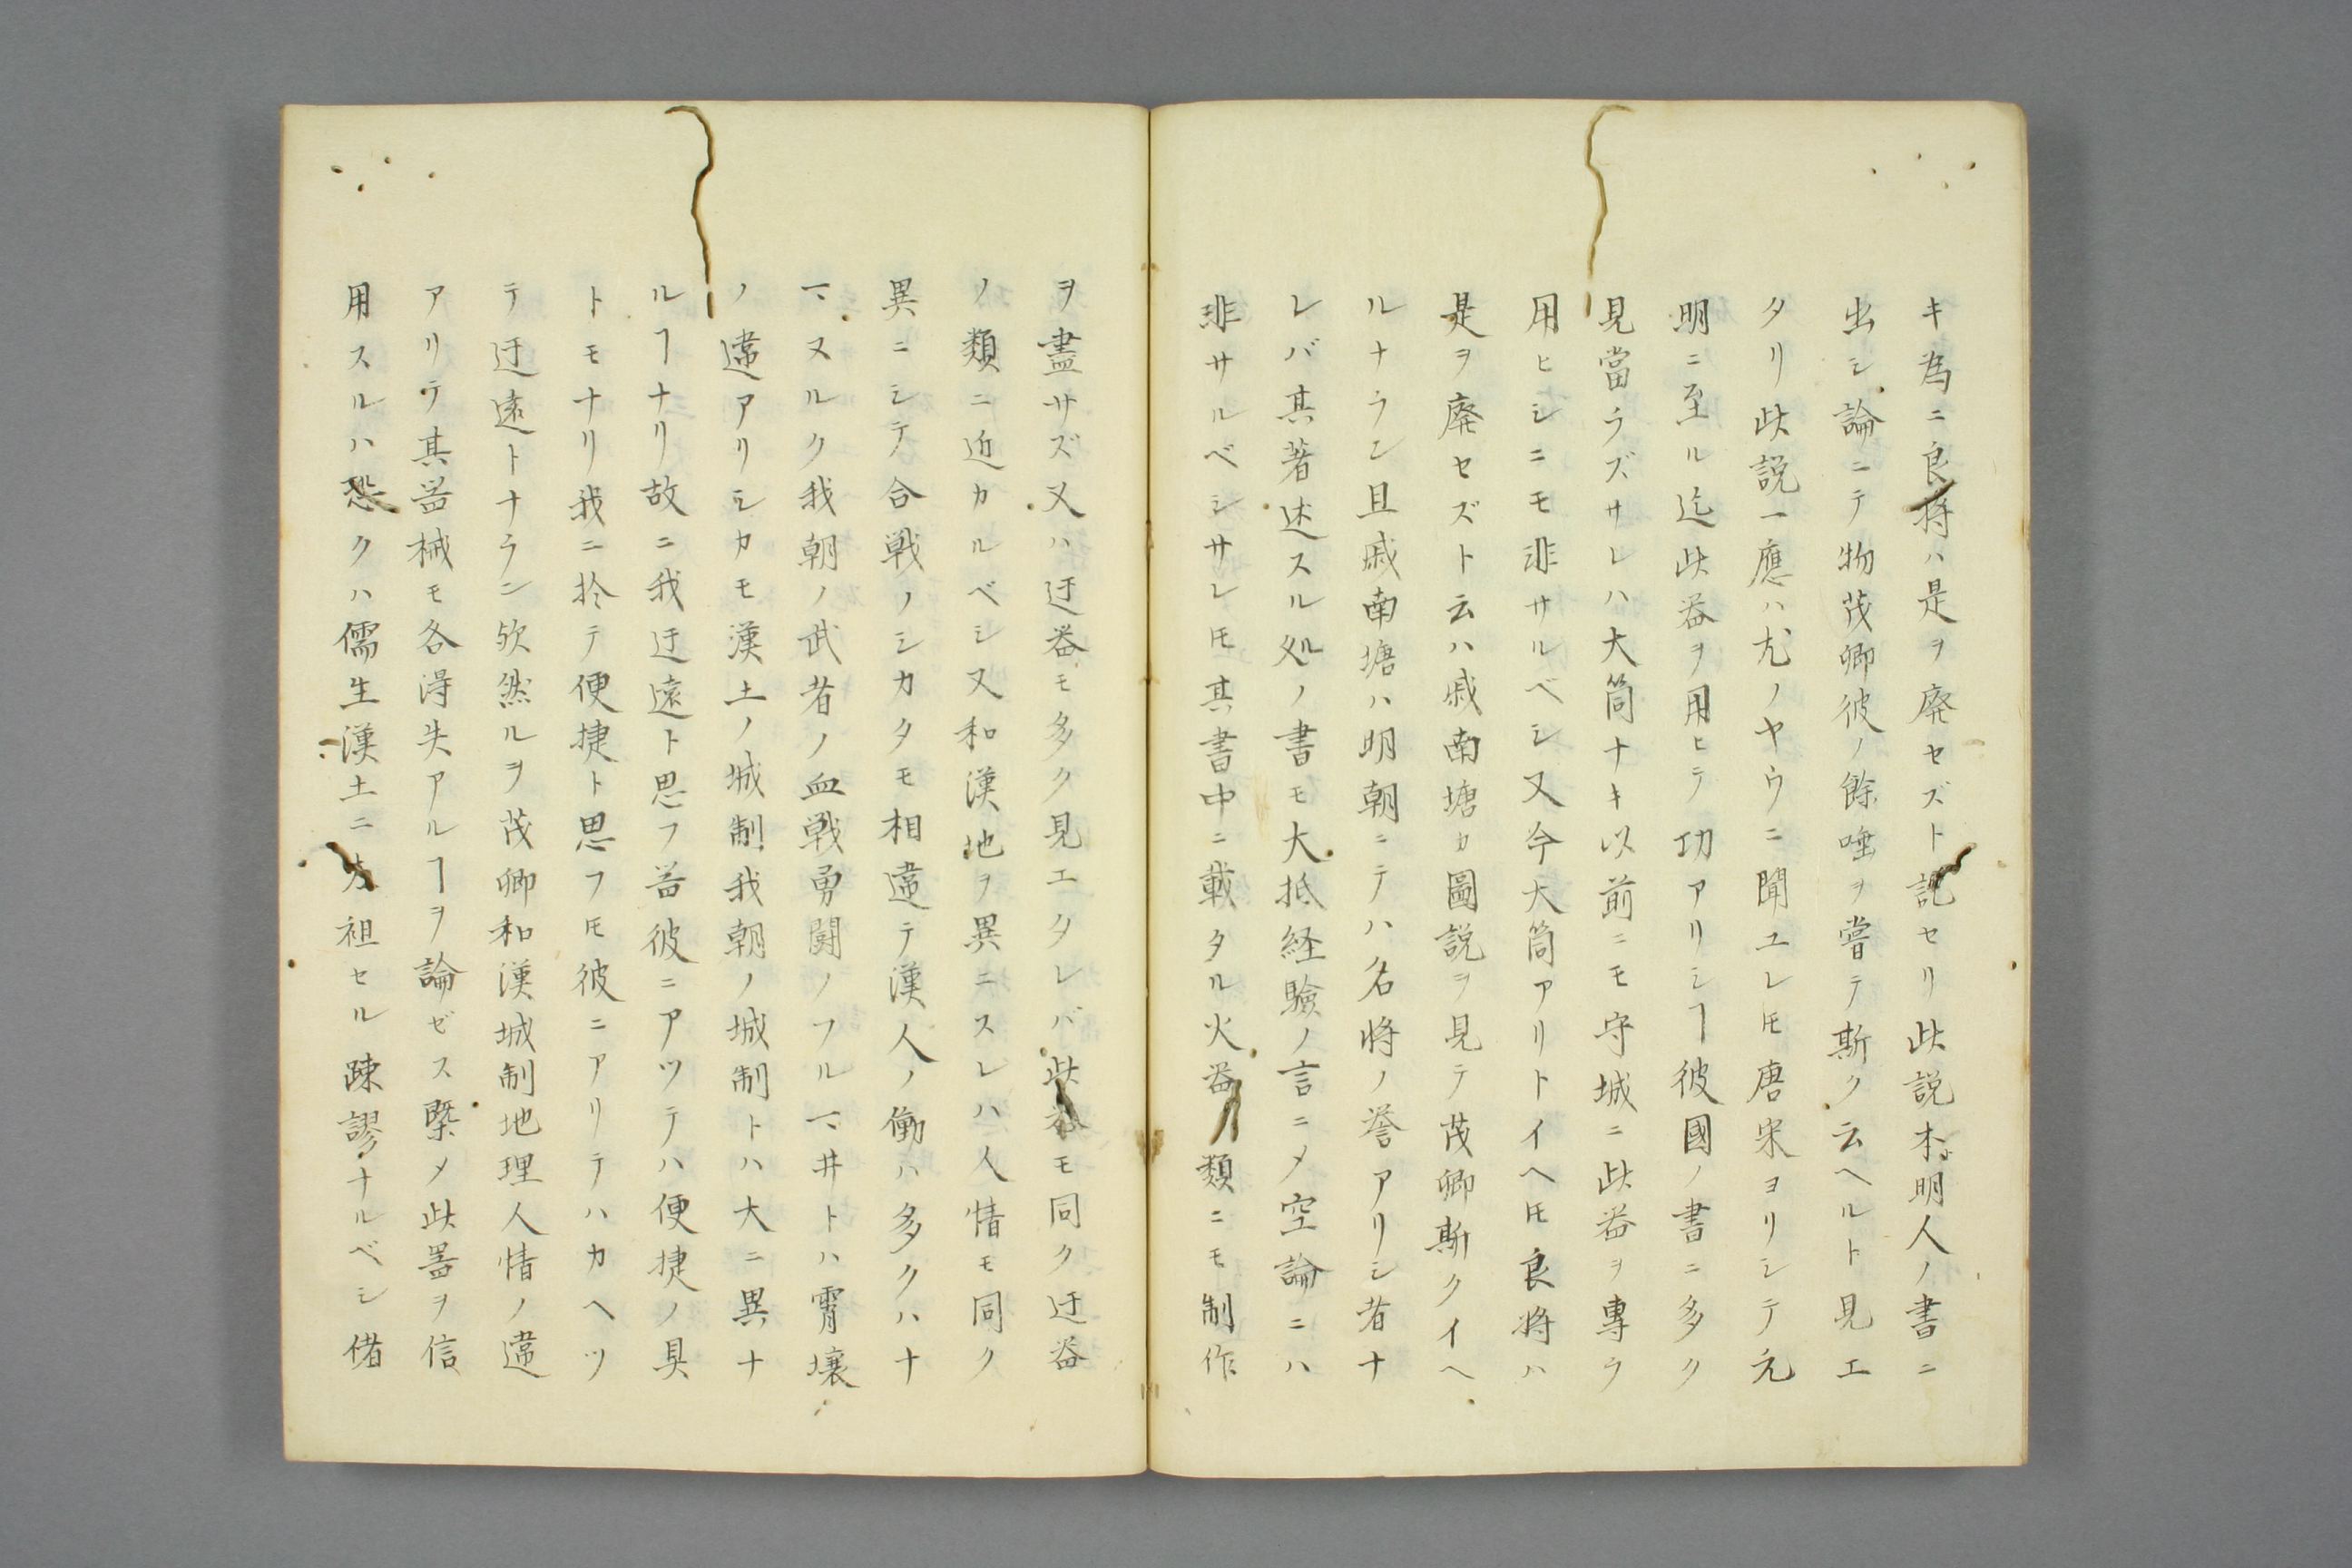 キ為ニ良将ハ是ヲ廃セズト記セリ此説本明人ノ書ニ
出シ論ニテ物茂卿彼ノ餘唾ヲ嘗テ斯ク云ヘルト見エ
タリ此説一應ハ尤ノヤウニ聞ユレ𪜈唐宋ヨリシテ元
明ニ至ル迄此器ヲ用ヒテ功アリシヿ彼國ノ書ニ多ク
見當ラズサレハ大筒ナキ以前ニモ守城ニ此器ヲ專ラ
用ヒシニモ非サルベシ又今大筒アリトイヘ𪜈良将ハ
是ヲ廃セズト云ハ戚南塘カ圖説ヲ見テ茂卿斯クイヘ
ルナラン且戚南塘ハ明朝ニテハ名将ノ誉アリシ者ナ
レバ其著述スル処ノ書モ大抵経驗ノ言ニ〆空論ニハ
非サルベシサレ𪜈其書中ニ載タル火器ノ類ニモ制作
ヲ盡サズ又ハ迂器モ多ク見エタレバ此モ同ク迂器
ノ類ニ近カルベシ又和漢地ヲ異ニスレハ人情モ同ク
異ニシテ合戦ノシカタモ相違テ漢人ノ働ハ多クハナ
マヌルク我朝ノ武者ノ血戦勇闘ノフルマ井トハ霄壤
ノ違アリシカモ漢土ノ城制我朝ノ城制トハ大ニ異ナ
ルヿナリ故ニ我迂遠ト思フ器彼ニアツテハ便捷ノ具
トモナリ我ニ於テ便捷ト思フ𪜈彼ニアリテハカヘツ
テ迂遠トナラン欤然ルヲ茂卿和漢城制地理人情ノ違
アリテ其器械モ各淂失アルヿヲ論ゼス槩〆此噐ヲ信
用スルハ恐クハ儒生漢土ニ左祖セル踈謬ナルベシ偖